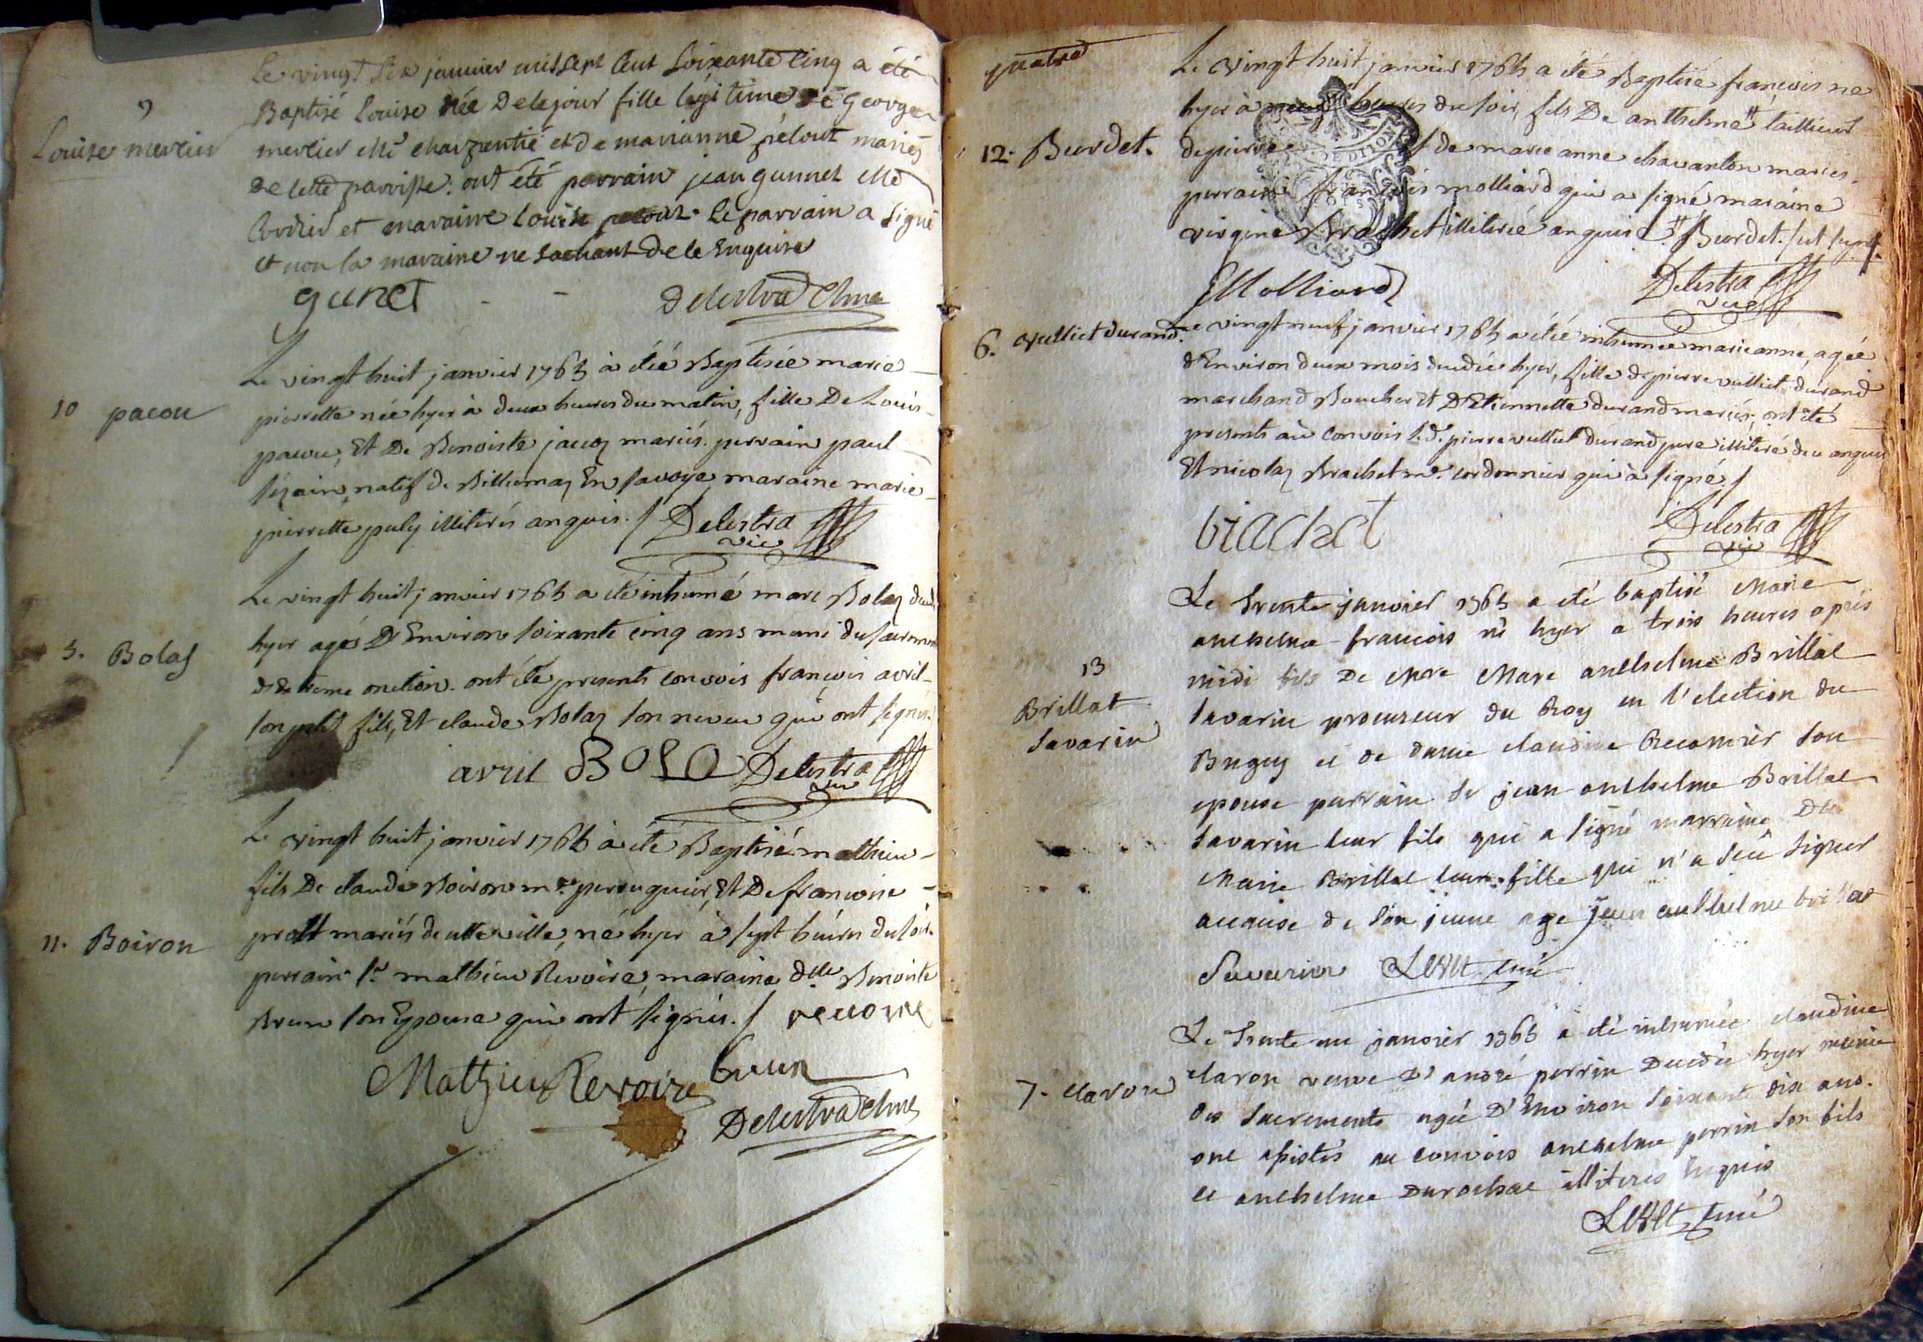 9
Louise mercier
Le vingt six janvier mil sept cent soixante cinq a été
Baptisé Louise née de le jour fille légitime de George
mercier charpentié et de marianne pelout mariés
de cette parroisse. ont été parrain jean gunnet
Cordier et maraine Louise pelout. le parrain a signé
et non la maraine ne sachant de le Enquise
gunet - - delestra
10 pacou
Le vingt huit janvier 1765 à été Baptisée marie
pierrette née hyer à deux heures du matin, fille De Louis
pacou, Et De Benoiste jacos mariés. parrain paul
natif de En Savoye, maraine marie
pierrette illiterés anquis. / Delestra
vic
5. Bolaz
Le vingt huit janvier 1765 a été inhumé marc Bolaz
hyer agés D'Environ soixante cinq ans muni du
d'extreme onction. ont été presents convois francois avril
son fils, Et claude Bolaz son neveu qui ont signés.
avril BOLO Delestra
vic
11. Boiron
Le vingt huit janvier 1765 à été Baptisé mathieu
fils De claude Boiron m.re perruquier, Et De francoise
mariés de cette ville, né hyer à sept heures du soir.
perrain s.r mathieu Revoire, maraine d.lle Benoiste
Brun son Epouse qui ont signés. / revoire
Mathieu Revoire brun
Delestra
quatre
12. Burdet.
Le vingt huit janvier 1765 a été Baptisé françois né
hyer à neuf heures du soir, fils De anthelme # tailleur
de pierre Et de marie anne chavanton mariés.
perrain françois molliard qui a signé maraine
virginie Brachet illiterée anquise. # Burdet.
Molliard Delestra
vic
6. Vulliet durand.
Le vingt neuf janvier 1765 a été inhumée marieanne, agée
d'Environ deux mois decedée hyer, fille de pierre vulliet durand
marchand Boucher Et D'Etiennette durand mariés, ont été
presents au convois led. pierre vulliet durand pere illiteré de ce anquis
Et nicolas Brachet m.e cordonnier qui à signé /
brachet Delestra
vic
13
Brillat
Savarin
Le trente janvier 1765 a été baptisé Marie
anthelme francois né hyer a trois heures après
midi fils De Marc anthelme Brillat
Savarin procureur du Roy en l'election du
Bugey et de dame claudine Recamier son
epouse parrain Sr jean anthelme Brillat
Savarin leur fils qui a signé marraine Dlle
Marie Brillat leur fille qui n'a sçû signer
acause de son jeune age jean anthelme brillat
Savarin
7. claron
Le trente un janvier 1765 a été inhumée claudine
claron veuve D'andré perrin Decedée hyer munie
des sacrements agée D'Environ soixante dix ans.
ont assistés au convois anthelme perrin son fils
et anthelme Durochat illiteres Enquis